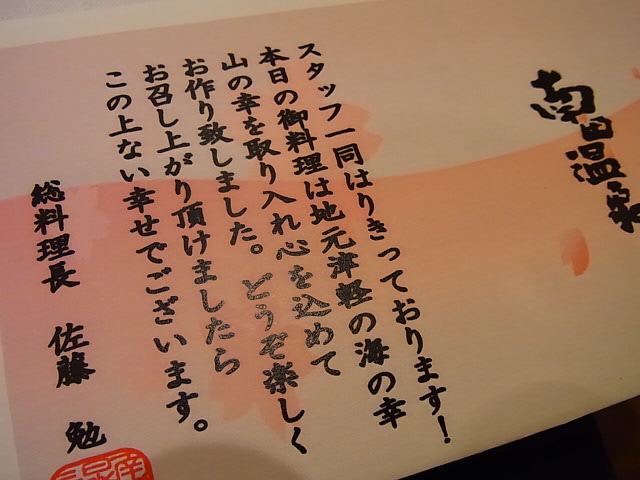 南田温泉
スタッフ一同はりきっております!
本日の御料理は地元津軽の海の幸
山の幸を取り入れ心を込めて
お作り致しました。どうぞ楽しく
お召し上がり頂けましたら
この上ない幸せでございます。
総料理長 佐藤 勉